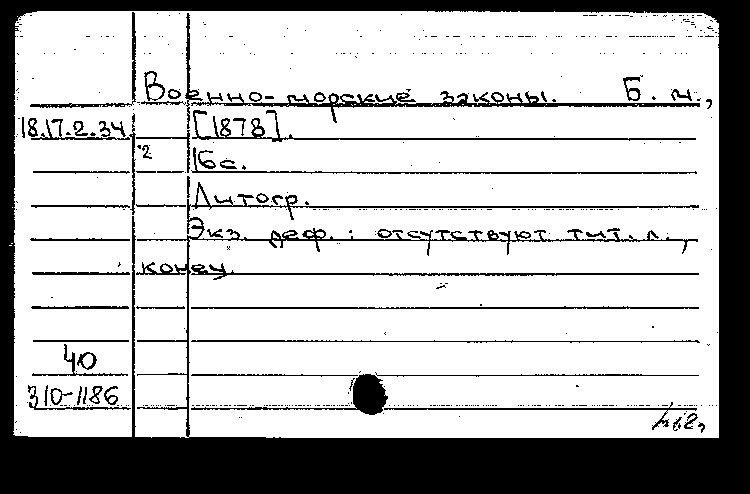 Военно-морские законы. Б. м.,
18.17.2.34. [1878].
2 16с.
Литогр.
Экз. деф.: отсутствуют тит. л.,
конец.
40
310-1186